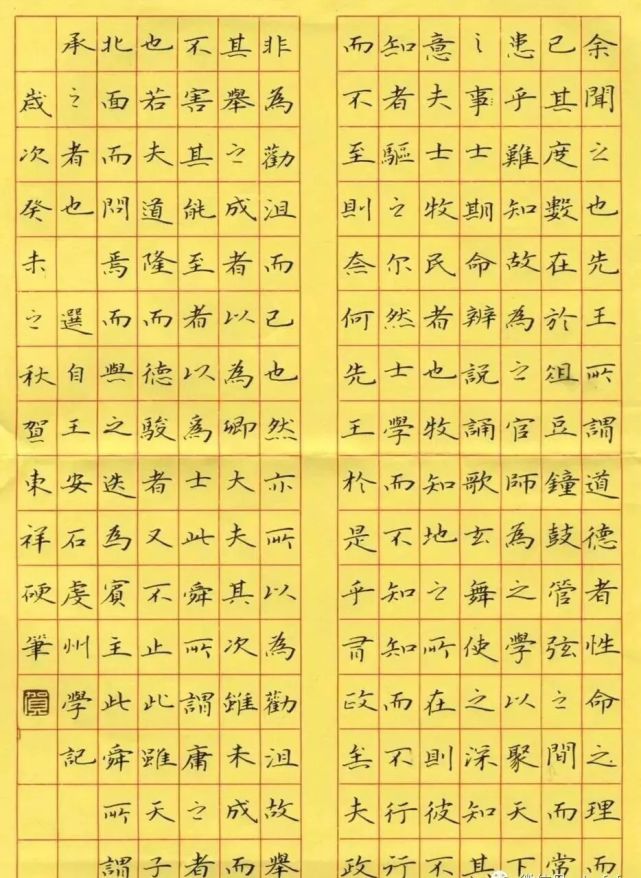 余聞之也先王所謂道德者性命之理而
已其度數在於俎豆鐘鼓管弦之間而常
患乎難知故為之官師為之學以聚天下
之事士期命辨說誦歌玄舞使之深知其
意夫士牧民者也牧知地之所在則彼不
知者驅之尔然士學而不知知而不行行
而不至則奈何先王於是乎有政矣夫政
非為勸沮而已也然亦所以為勸沮故舉
其舉之成者以為卿大夫其次雖未成而
不害其能至者以為士此舜所謂庸之者
也若夫道隆而德駿者又不止此雖天子
北面而問焉而與之迭為賓主此舜所謂
承之者也 選自王安石虔州學記
歲次癸未之秋賀東祥硬筆
賀